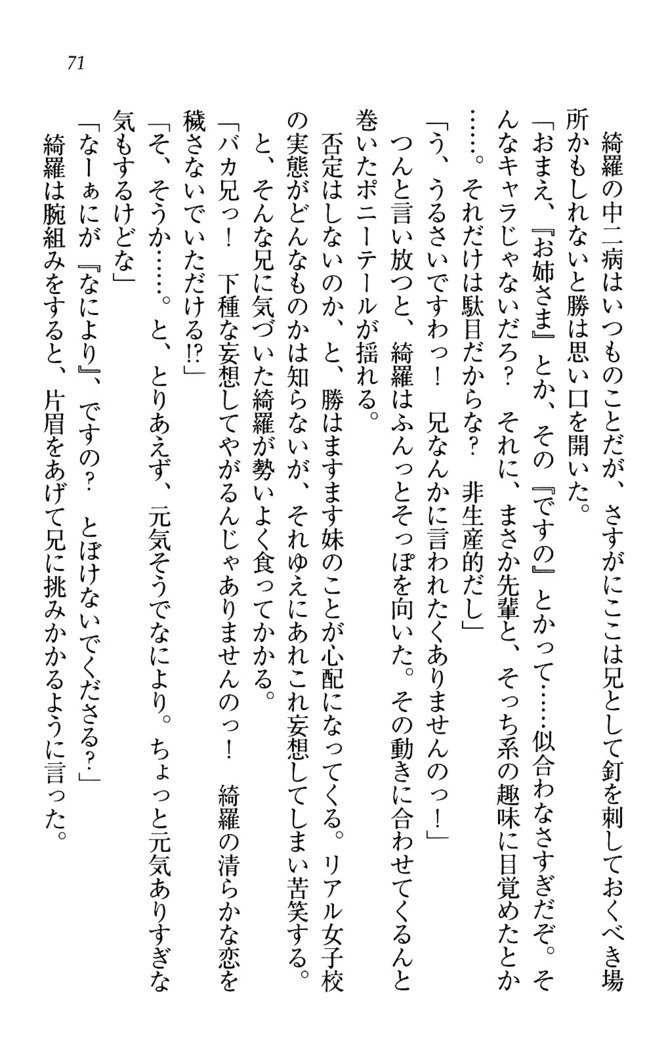 71
綺羅の中二病はいつものことだが、さすがにここは兄として釘を刺しておくべき場
所かもしれないと勝は思い口を開いた。
「おまえ、『お姉さま』とか、その『ですの』とかって……似合わなさすぎだぞ。そ
んなキャラじゃないだろ？　それに、まさか先輩と、そっち系の趣味に目覚めたとか
……。それだけは駄目だからな？　非生産的だし」
「う、うるさいですわっ！　兄なんかに言われたくありませんのっ！」
つんと言い放つと、綺羅はふんっとそっぽを向いた。その動きに合わせてくるんと
巻いたポニーテールが揺れる。
否定はしないのか、と、勝はますます妹のことが心配になってくる。リアル女子校
の実態がどんなものかは知らないが、それゆえにあれこれ妄想してしまい苦笑する。
と、そんな兄に気づいた綺羅が勢いよく食ってかかる。
「バカ兄っ！　下種な妄想してやがるんじゃありませんのっ！　綺羅の清らかな恋を
穢さないでいただける!?」
「そ、そうか……。と、とりあえず、元気そうでなにより。ちょっと元気ありすぎな
気もするけどな」
「なーぁにが『なにより』、ですの？　とぼけないでくださる？」
綺羅は腕組みをすると、片眉をあげて兄に挑みかかるように言った。